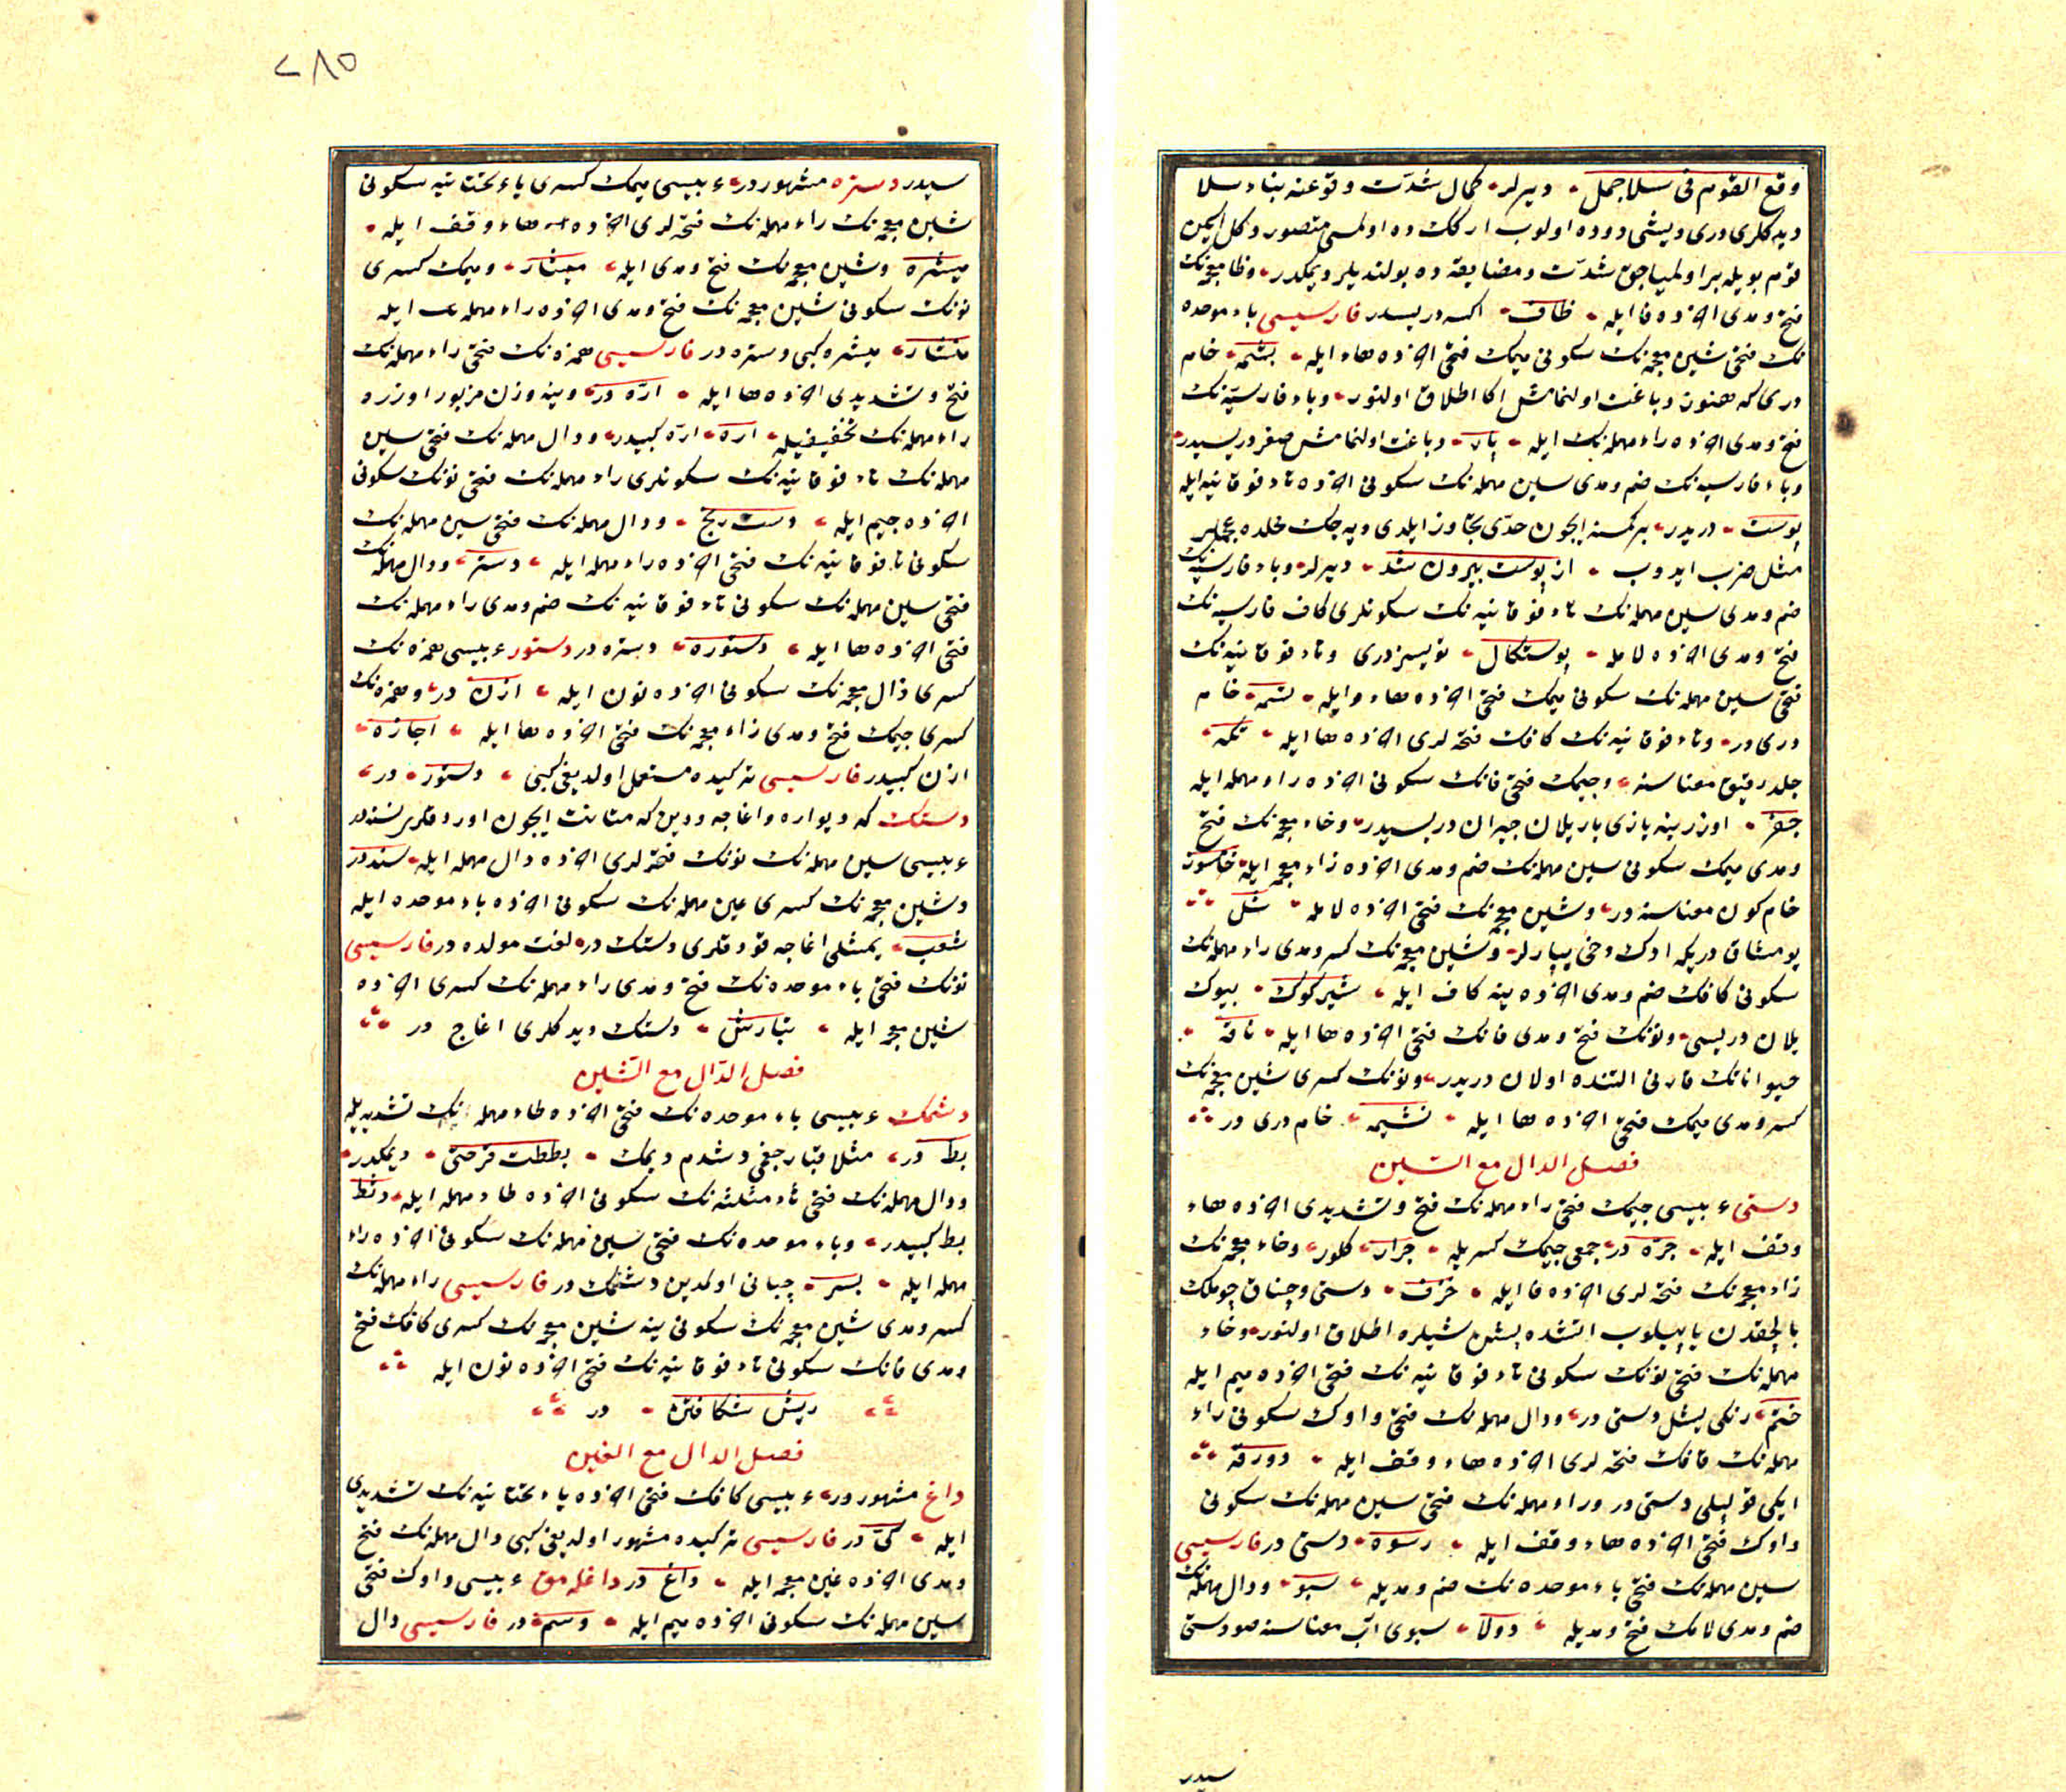 وقع القوم فی سلا جمل دیرلر کمال شدّت وقوعنه بناء سلا
دیدکلری دری دیشی دوده اولوب ارککده اولمسی متصور دکل ایکن
قوم بویله بر اولمیاجق شدّت ومضایقه ده بولندیلر دیمکدر وظا معجمه نک
فتح ومدی اخرده فا ایله ظاف اکسه دریسیدر فارسیسی باء موحده
نک فتحی شین معجمه نک سکونی میمک فتحی اخرده هاء ایله بشمه خام
دری که هنوز دباغت اولنمامش اکا اطلاق اولنور وباء فارسیّه نک
فتح ومدی اخرده راء مهمله نک ایله پار دباغت اولنمامش صغر دریسیدر
وباء فارسیه نک ضم ومدی سین مهمله نک سکونی اخرده تاء فوقانیه ایله
پوست دریدر بر کمسنه ایچون حدّی تجاوز ایلدی دیه جک محلده عجملر
مثل ضرب ایدوب از پوست بیرون شد دیرلر وباء فارسیه نک
ضم ومدی سین مهمله نک تاء فوقانیه نک سکونلری کاف فارسیه نک
فتح ومدی اخرده لامله پوستکال تویسز دری وتاء فوقانیه نک
فتحی سین مهمله نک سکونی میمک فتحی اخرده هاء ایله تسمه خام
دری در وتاء فوقانیه نک کافک فتحه لری اخرده ها ایله تکه
جلد رقیق معناسنه وجیمک فتحی فانک سکونی اخرده راء مهمله ایله
جفر اوزرینه یازی یازیلان جیران دریسیدر وخاء معجمه نک فتح
ومدی میمک سکونی سین مهمله نک ضم ومدی اخرده زاء معجمه ایله خامسوز
خام کون معناسنه در وشین معجمه نک فتحی اخرده لامله شل
یومشاق دریکه ادک دخی یپارلر وشین معجمه نک کسر ومدی راء مهمله نک
سکونی کافک ضم ومدی اخرده ینه کاف ایله شیرکوک بیوک
یلان دریسی ونونک فتح ومدی فانک فتحی اخرده ها ایله نافه
حیواناتک قارنی التنده اولان دریدر ونونک کسری شین معجمه نک
کسر ومدی میمک فتحی اخرده ها ایله نشیمه خام دری در
فصل الدال مع السین
دستی عربیسی جیمک فتحی راء مهمله نک فتح وتشدیدی اخرده هاء
وقف ایله جرّه در جمعی جیمک کسریله جرار کلور وخاء معجمه نک
زاء معجمه نک فتحه لری اخرده فا ایله خزف دستی وچناق چوملک
بالچقدن یاپیلوب اتشده پشن شیلره اطلاق اولنور وحاء
مهمله نک فتحی نونک سکونی تاء فوقانیه نک فتحی اخرده میم ایله
حنتم رنکی یشل دستی در ودال مهمله نک فتحی واوک سکونی راء
مهمله نک قافک فتحه لری اخرده هاء وقف ایله دورقه
ایکی قولپلی دستی در وراء مهمله نک فتحی سین مهمله نک سکونی
واوک فتحی اخرده هاء وقف ایله رسوه دستی در فارسیسی
سین مهمله نک فتحی باء موحده نک ضم ومدیله سبو ودال مهمله نک
ضم ومدی لامک فتح ومدیله دولا سبوی آب معناسنه صو دستی
سیدر
۲۸۵
سیدر دستره مشهوردر عربیسی میمک کسری یاء تحتانیه سکونی
شین معجمه نک راء مهمله نک فتحه لری اخرده هاء وقف ایله
میشره وشین معجمه نک فتح ومدی ایله میشار ومیمک کسری
نونک سکونی شین معجمه نک فتح ومدی اخرده راء مهمله ایله
منشار میشره کبی دستره در فارسیسی همزه نک فتحی راء مهمله نک
فتح وتشدیدی اخرده ها ایله ارّه در وینه وزن مزبور اوزره
راء مهمله نک تخفیفیله اره ارّه کبیدر ودال مهمله نک فتحی سین
مهمله نک تاء فوقانیه نک سکونلری راء مهمله نک فتحی نونک سکونی
اخرده جیم ایله دست رنج ودال مهمله نک فتحی سین مهمله نک
سکونی تاء فوقانیه نک فتحی اخرده راء مهمله ایله دستر ودال مهمله نک
فتحی سین مهمله نک سکونی تاء فوقانیه نک ضم ومدی راء مهمله نک
فتحی اخرده ها ایله دستوره دستره در دستور عربیسی همزه نک
کسری ذال معجمه نک سکونی اخرده نون ایله اذن در وهمزه نک
کسری جیمک فتح ومدی زاء معجمه نک فتحی اخرده ها ایله اجازه
اذن کبیدر فارسیسی ترکیده مستعمل اولدیغی کبی دستور در
دستک که دیواره واغاجه ودین که متانت ایچون اوردقلری نسنه در
عربیسی سین مهمله نک نونک فتحه لری اخرده دال مهمله ایله سند در
وشین معجمه نک کسری عین مهمله نک سکونی اخرده باء موحده ایله
شعب یمشلی اغاجه قودقلری دستک در لغت مولده در فارسیسی
نونک فتحی باء موحده نک فتح ومدی راء مهمله نک کسری اخرده
شین معجمه ایله نبارش دستک دیدکلری اغاج در
فصل الدّال مع الشین
دشمک عربیسی باء موحده نک فتحی اخرده طاء مهمله نک تشدیدیله
بط در مثلا قبارجغی دشدم دیمک بططت قرحتی دیمکدر
ودال مهمله نک فتحی ثاء مثلثه نک سکونی اخرده طاء مهمله ایله دثط
بط کبیدر وباء موحده نک فتحی سین مهمله نک سکونی اخرده راء
مهمله ایله بسر چبانی اولمدین دشمک در فارسیسی راء مهمله نک
کسر ومدی شین معجمه نک سکونی ینه شین معجمه نک کسری کافک فتح
ومدی فانک سکونی تاء فوقانیه نک فتحی اخرده نون ایله
ریش شکافتن در
فصل الدال مع الغین
داغ مشهوردر عربیسی کافک فتحی اخرده یاء تحتانیه نک تشدیدی
ایله کیّ در فارسیسی ترکیده مشهور اولدیغی کبی دال مهمله نک فتح
ومدی اخرده غین معجمه ایله داغ در داغلمق عربیسی واوک فتحی
سین مهمله نک سکونی اخرده میم ایله وسم در فارسیسی دال